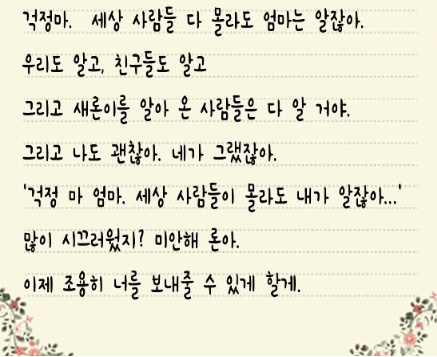 걱정마. 세상 사람들 다 몰라도 엄마는 알잖아.
우리도 알고, 친구들도 알고
그리고 새론이를 알아 온 사람들은 다 알 거야.
그리고 나도 괜찮아. 네가 그랬잖아.
'걱정 마 엄마. 세상 사람들이 몰라도 내가 알잖아...'
많이 시끄러웠지? 미안해 론아.
이제 조용히 너를 보내줄 수 있게 할게.